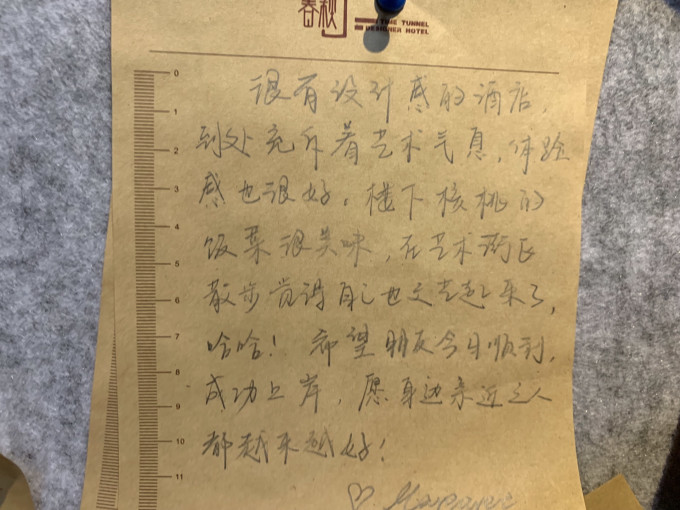 春秋
TIME TUNNEL
DESIGNER HOTEL
0
1
2
3
4
5
6
7
8
9
10
11
很有设计感的酒店,
到处充斥着艺术气息,体验
感也很好。楼下核桃的
饭菜很美味,在艺术街区
散步觉得自己也文艺起来了,
哈哈!希望朋友今年顺利,
成功上岸,愿身边亲近之人
都越来越好!